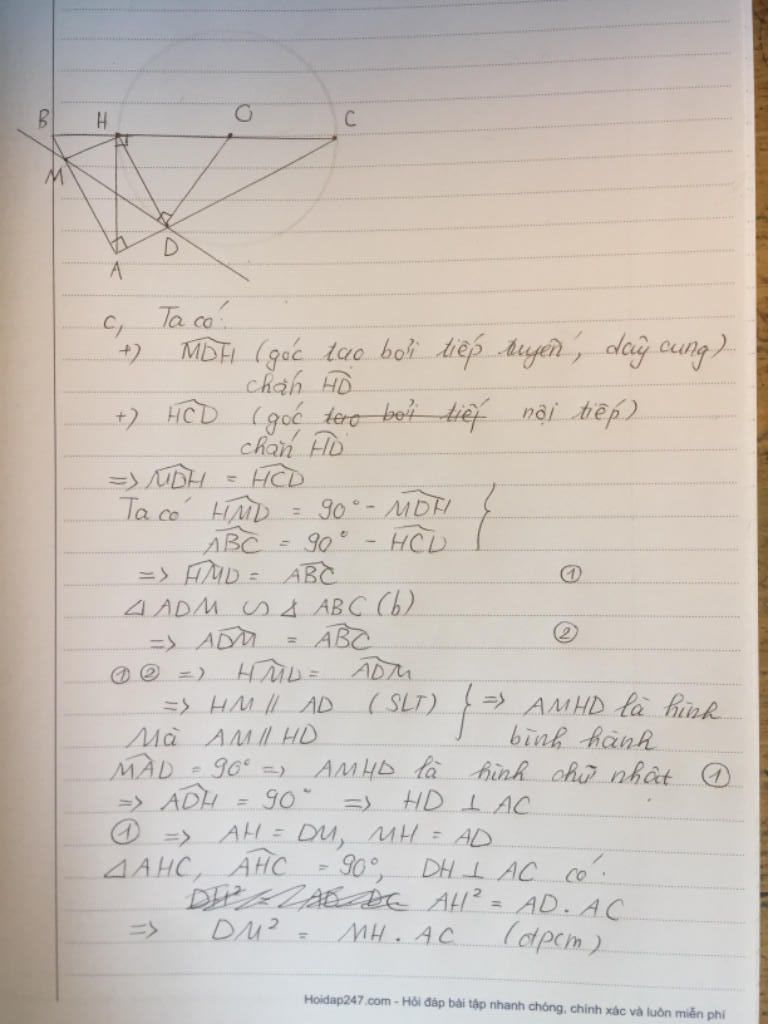 B H O C
M
A D
c, Ta có:
+) M̂DH (góc tạo bởi tiếp tuyến, dây cung)
chắn HD
+) HCD (góc tạo bởi tiếp nội tiếp)
chắn HD
=> MDH = HCD
Ta có HMD = 90° - MDH }
ABC = 90° - HCD
=> HMD = ABC ①
△ADM ∽ △ABC (b)
=> ADM = ABC ②
① ② => HMD = ADM
=> HM // AD (SLT) } => AMHD là hình
Mà AM // HD bình hành
MAD = 90° => AMHD là hình chữ nhật ①
=> ADH = 90° => HD ⊥ AC
① => AH = DM, MH = AD
△AHC, AHC = 90°, DH ⊥ AC có:
AH² = AD . AC
=> DM² = MH . AC (đpcm)
Hoidap247.com - Hỏi đáp bài tập nhanh chóng, chính xác và luôn miễn phí